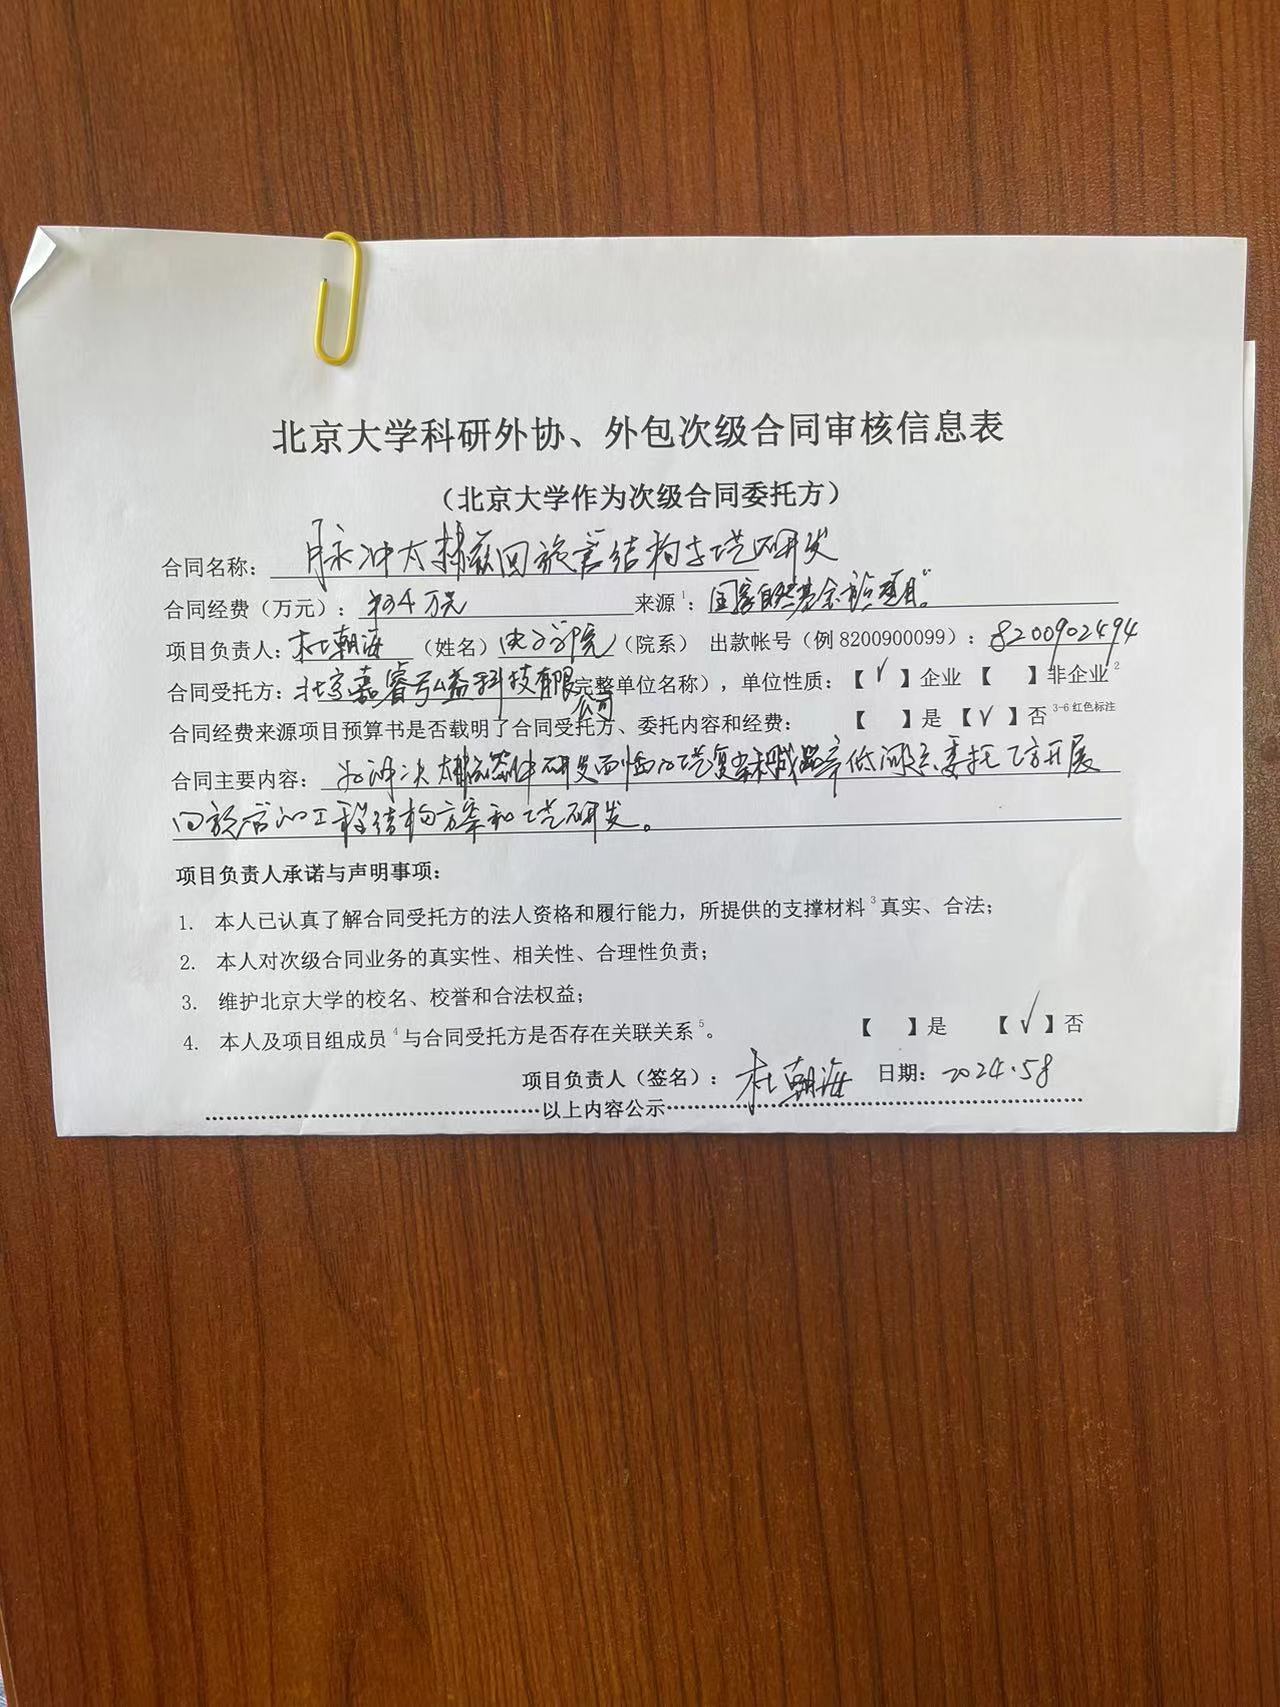 北京大学科研外协、外包次级合同审核信息表
（北京大学作为次级合同委托方）
合同名称：脉冲太赫兹回旋管结构与工艺研发
合同经费（万元）：4万元 来源1：国家自然基金项目。
项目负责人：杜朝海（姓名）电子学院（院系） 出款帐号（例8200900099）：8200902494
合同受托方：北京嘉睿弘益科技有限公司完整单位名称），单位性质：【√】企业【 】非企业2
合同经费来源项目预算书是否载明了合同受托方、委托内容和经费：【 】是【√】否3-6红色标注
合同主要内容：为解决太赫兹器件研发面临的工艺复杂和成品率低问题，委托乙方开展
回旋管的工程结构方案和工艺研发。
项目负责人承诺与声明事项：
1. 本人已认真了解合同受托方的法人资格和履行能力，所提供的支撑材料3真实、合法；
2. 本人对次级合同业务的真实性、相关性、合理性负责；
3. 维护北京大学的校名、校誉和合法权益；
4. 本人及项目组成员4与合同受托方是否存在关联关系5。【 】是 【√】否
项目负责人（签名）：杜朝海 日期：2024.5.8
以上内容公示